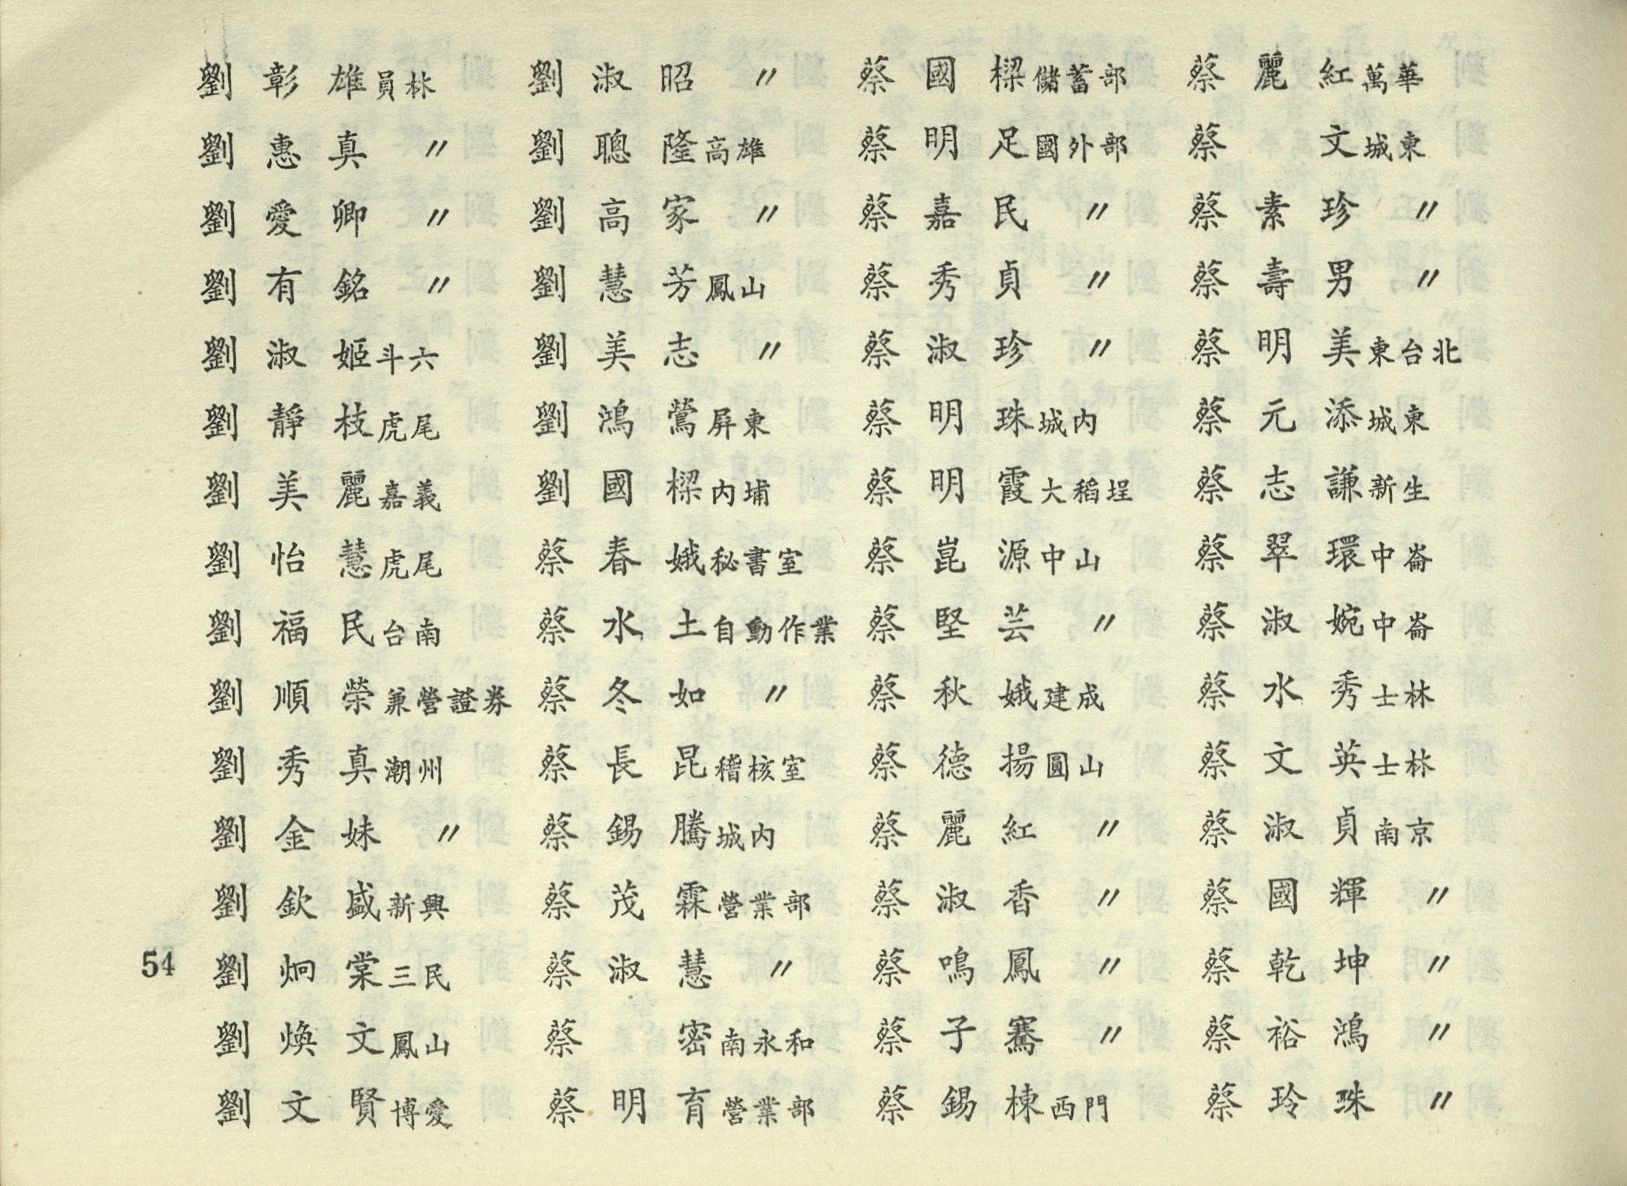 劉彰雄員林
劉惠真 〃
劉愛卿 〃
劉有銘 〃
劉淑姬斗六
劉靜枝虎尾
劉美麗嘉義
劉怡慧虎尾
劉福民台南
劉順榮兼營證券
劉秀真潮州
劉金妹 〃
劉欽盛新興
劉炯棠三民
劉煥文鳳山
劉文賢博愛
劉淑昭 〃
劉聰隆高雄
劉高家 〃
劉慧芳鳳山
劉美志 〃
劉鴻鶯屏東
劉國樑內埔
蔡春娥秘書室
蔡水土自動作業
蔡冬如 〃
蔡長昆稽核室
蔡錫騰城內
蔡茂霖營業部
蔡淑慧 〃
蔡 密南永和
蔡明育營業部
蔡國樑儲蓄部
蔡明足國外部
蔡嘉民 〃
蔡秀貞 〃
蔡淑珍 〃
蔡明珠城內
蔡明霞大稻埕
蔡崑源中山
蔡堅芸 〃
蔡秋娥建成
蔡德揚圓山
蔡麗紅 〃
蔡淑香 〃
蔡鳴鳳 〃
蔡子騫 〃
蔡錫棟西門
蔡麗紅萬華
蔡 文城東
蔡素珍 〃
蔡壽男 〃
蔡明美東台北
蔡元添城東
蔡志謙新生
蔡翠環中崙
蔡淑婉中崙
蔡水秀士林
蔡文英士林
蔡淑貞南京
蔡國輝 〃
蔡乾坤 〃
蔡裕鴻 〃
蔡玲珠 〃
54